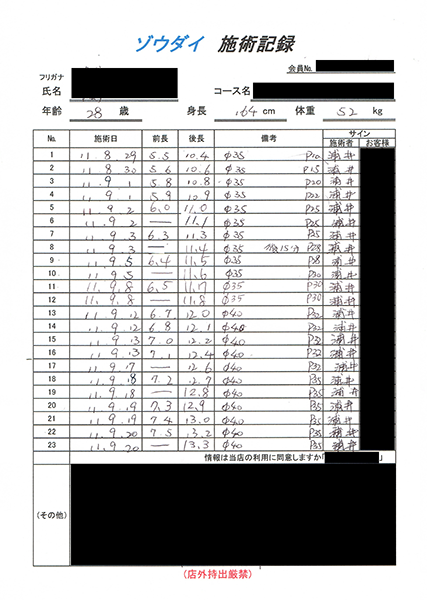 ゾウダイ 施術記録
会員No.
フリガナ
氏名 コース名
年齢 28 歳 身長 164 cm 体重 52 kg
No. 施術日 前長 後長 備考 サイン
施術者 お客様
1 11 8. 29 5.5 10.4 Φ35 P10 浦井
2 11 8 30 5.6 10.6 Φ35 P15 浦井
3 11. 9 1 5.8 10.8 Φ35 P20 浦井
4 11. 9 1 5.9 10.9 Φ35 P22 浦井
5 11. 9 2 6.0 11.0 Φ35 P25 浦井
6 11. 9. 2 — 11.1 Φ35 P25 浦井
7 11. 9. 3 6.3 11.3 Φ35 P25 浦井
8 11. 9. 3 — 11.4 Φ35 P28 浦井
9 11. 9. 5 6.4 11.5 Φ35 P28 浦井
10 11. 9 5 — 11.6 Φ35 P30 浦井
11 11. 9. 8 6.5 11.7 Φ35 P30 浦井
12 11. 9. 8 — 11.8 Φ35 P30 浦井
13 11. 9. 12 6.7 12.0 Φ40 P32 浦井
14 11. 9. 12 6.8 12.1 Φ40 P32 浦井
15 11. 9. 13 7.0 12.2 Φ40 P32 浦井
16 11. 9. 13 7.1 12.4 Φ40 P32 浦井
17 11. 9. 17 — 12.6 Φ40 P32 浦井
18 11. 9. 18 7.2 12.7 Φ40 P35 浦井
19 11. 9. 18 — 12.8 Φ40 P35 浦井
20 11. 9. 19 7.3 12.9 Φ40 P35 浦井
21 11. 9. 19 7.4 13.0 Φ40 P35 浦井
22 11. 9. 20 7.5 13.2 Φ40 P35 浦井
23 11. 9. 20 — 13.3 Φ40 P35 浦井
情報は当店の利用に同意しますか「 」
(その他)
(店外持出厳禁)